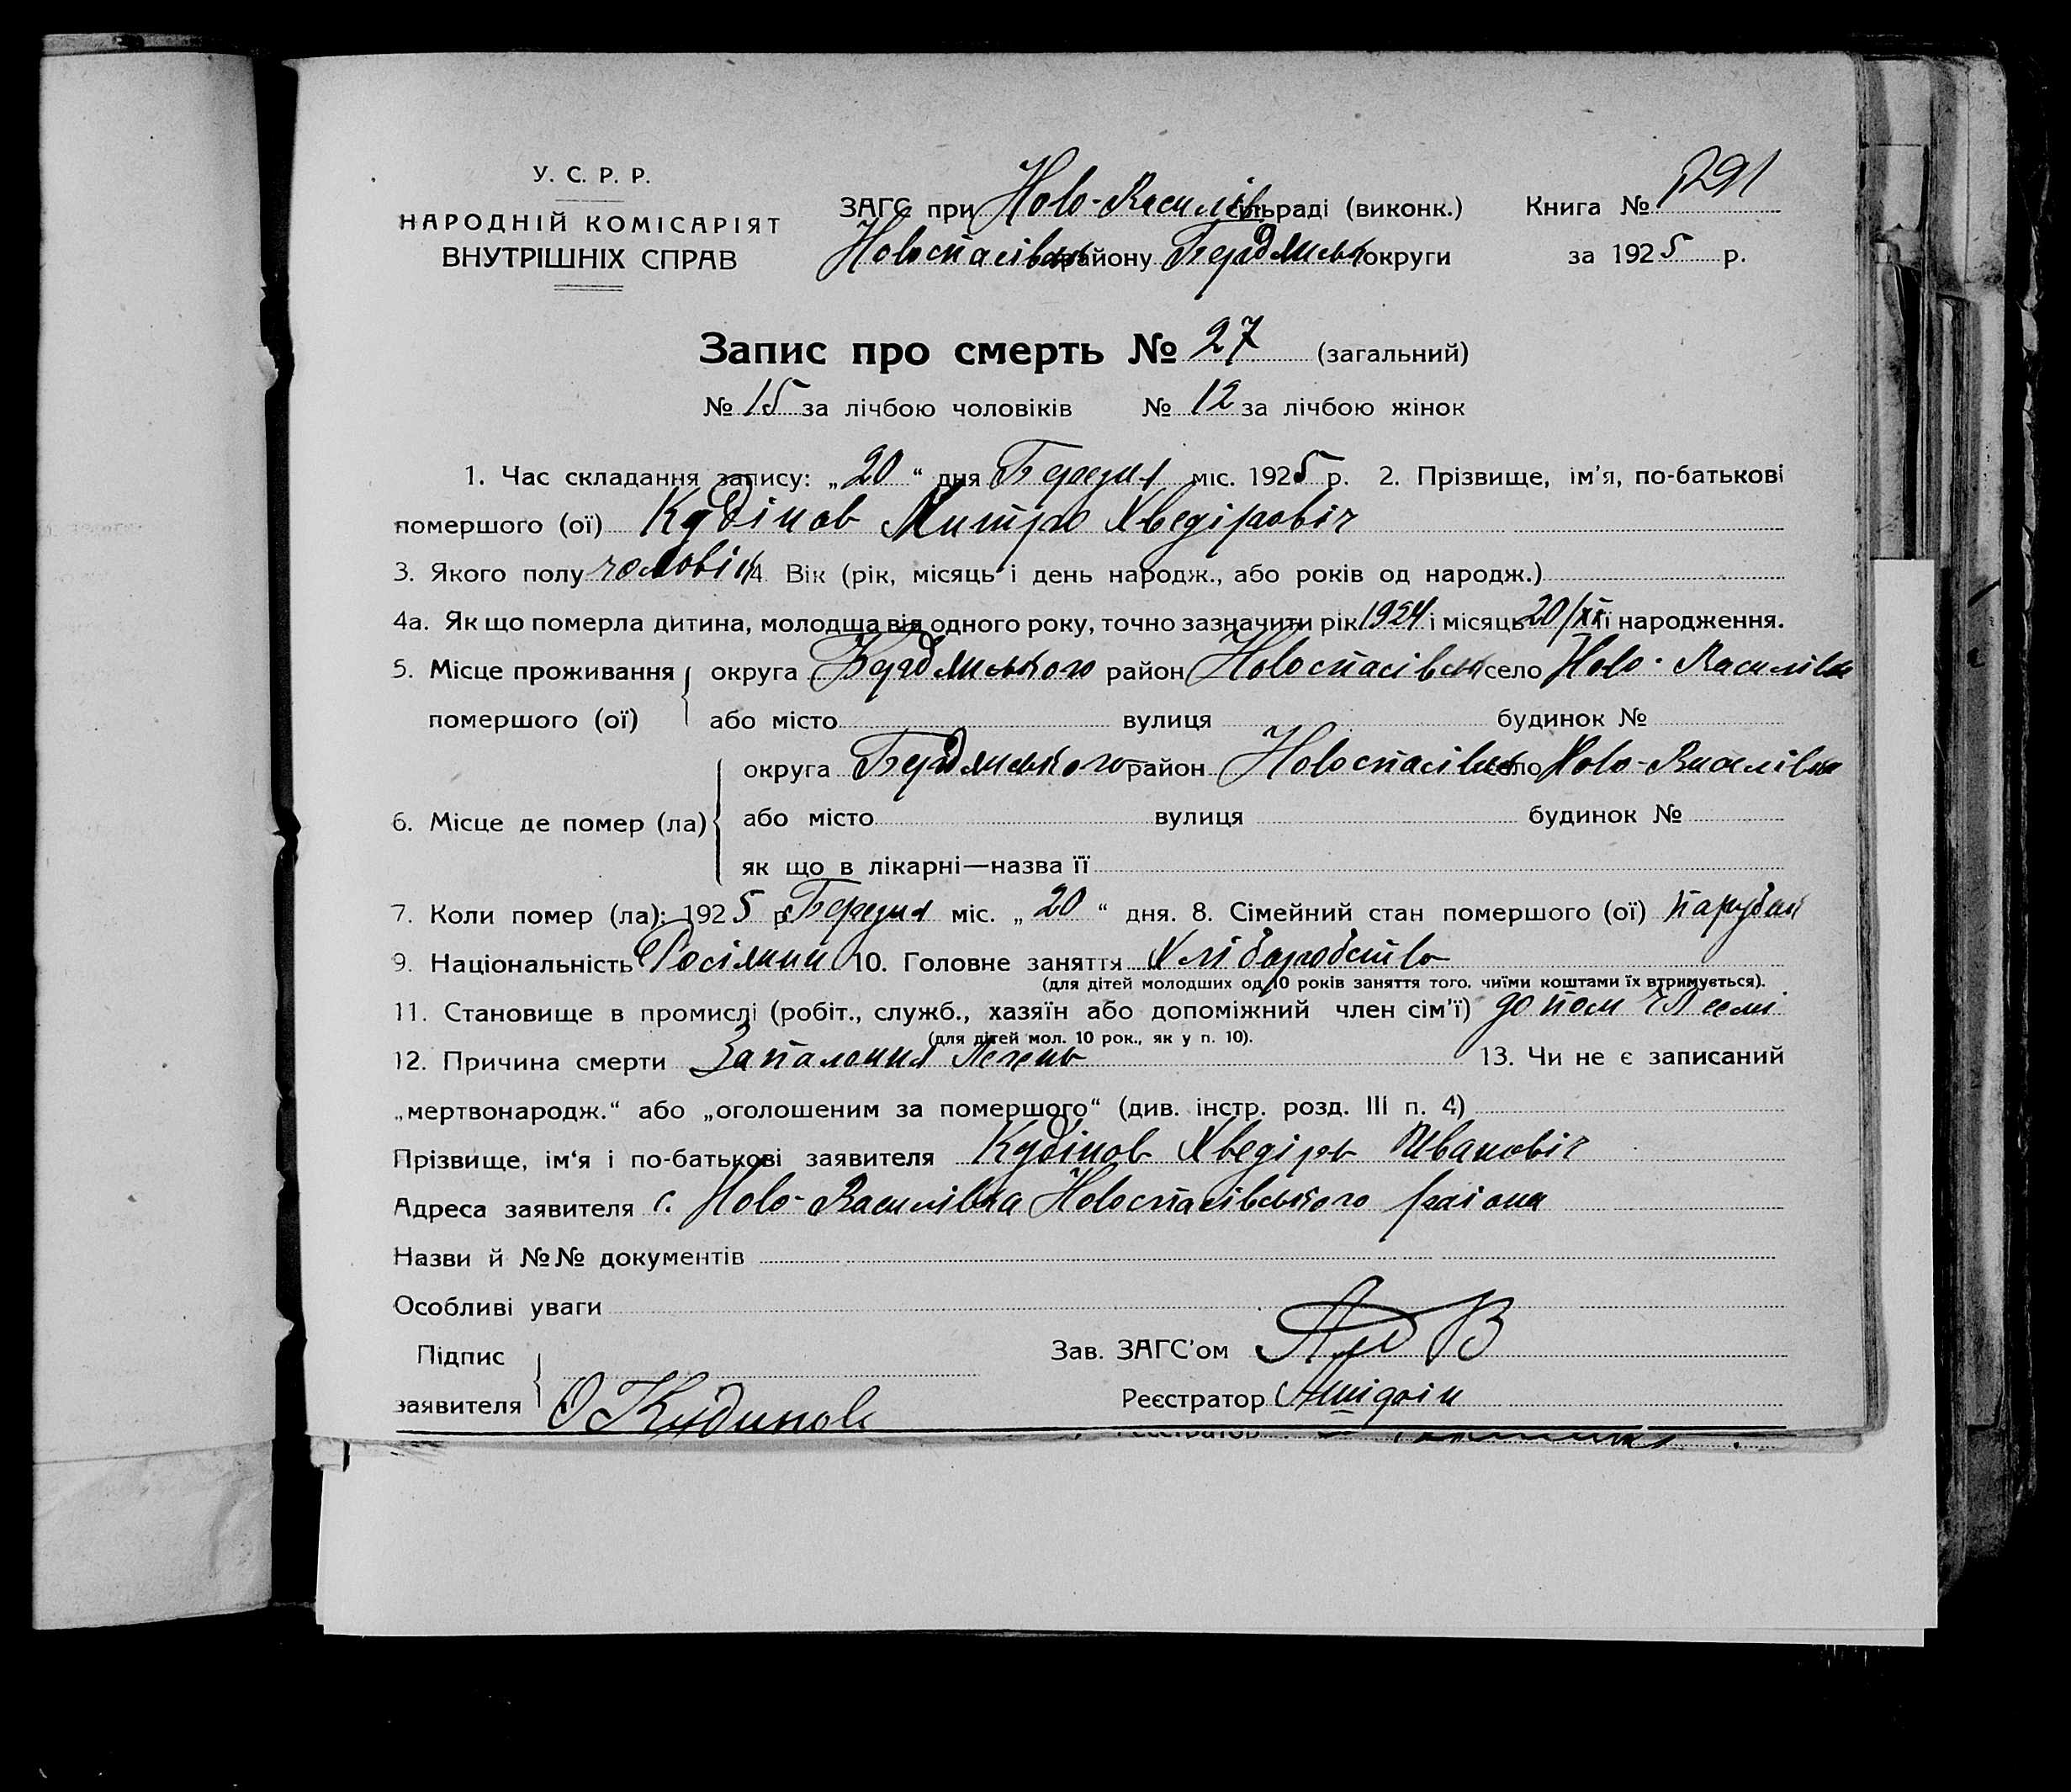 У. С. Р. Р.
НАРОДНІЙ КОМІСАРІЯТ
ВНУТРІШНІХ СПРАВ
ЗАГС при Ново-Василів сільраді (виконк.) Книга № 291
Новоспасівськ району Бердянськ округи за 1925 р.
Запис про смерть № 27 (загальний)
№ 15 за лічбою чоловіків № 12 за лічбою жінок
1. Час складання запису: „20“ дня Березня міс. 1925 р. 2. Прізвище, ім'я, по-батькові
помершого (ої) Кудінов Митро Хведіровіч
3. Якого полу чоловік 4. Вік (рік, місяць і день народж., або років од народж.)
4а. Як що померла дитина, молодща від одного року, точно зазначити рік 1924 і місяць 20/XI її народження.
5. Місце проживання помершого (ої) округа Бердянського район Новоспасівськ село Ново-Василівка
або місто вулиця будинок №
6. Місце де помер (ла) округа Бердянського район Новоспасівськ село Ново-Василівка
або місто вулиця будинок №
як що в лікарні—назва її
7. Коли помер (ла): 1925 р. Березня міс. „20“ дня. 8. Сімейний стан помершого (ої) парубок
9. Національність Росіянин 10. Головне заняття Хліборобство
(для дітей молодших од 10 років заняття того, чиїми коштами їх втримується).
11. Становище в промислі (робіт., служб., хазяїн або допоміжний член сім'ї) допом чл семі
(для дітей мол. 10 рок., як у п. 10).
12. Причина смерти Запалення Легень 13. Чи не є записаний
„мертвонародж.“ або „оголошеним за помершого“ (див. інстр. розд. III п. 4)
Прізвище, ім'я і по-батькові заявителя Кудінов Хведіръ Иванович
Адреса заявителя с. Ново-Василівка Новоспасівського раіона
Назви й №№ документів
Особливі уваги
Підпис заявителя Кудинов
Зав. ЗАГС'ом
Реєстратор
Реєстратор